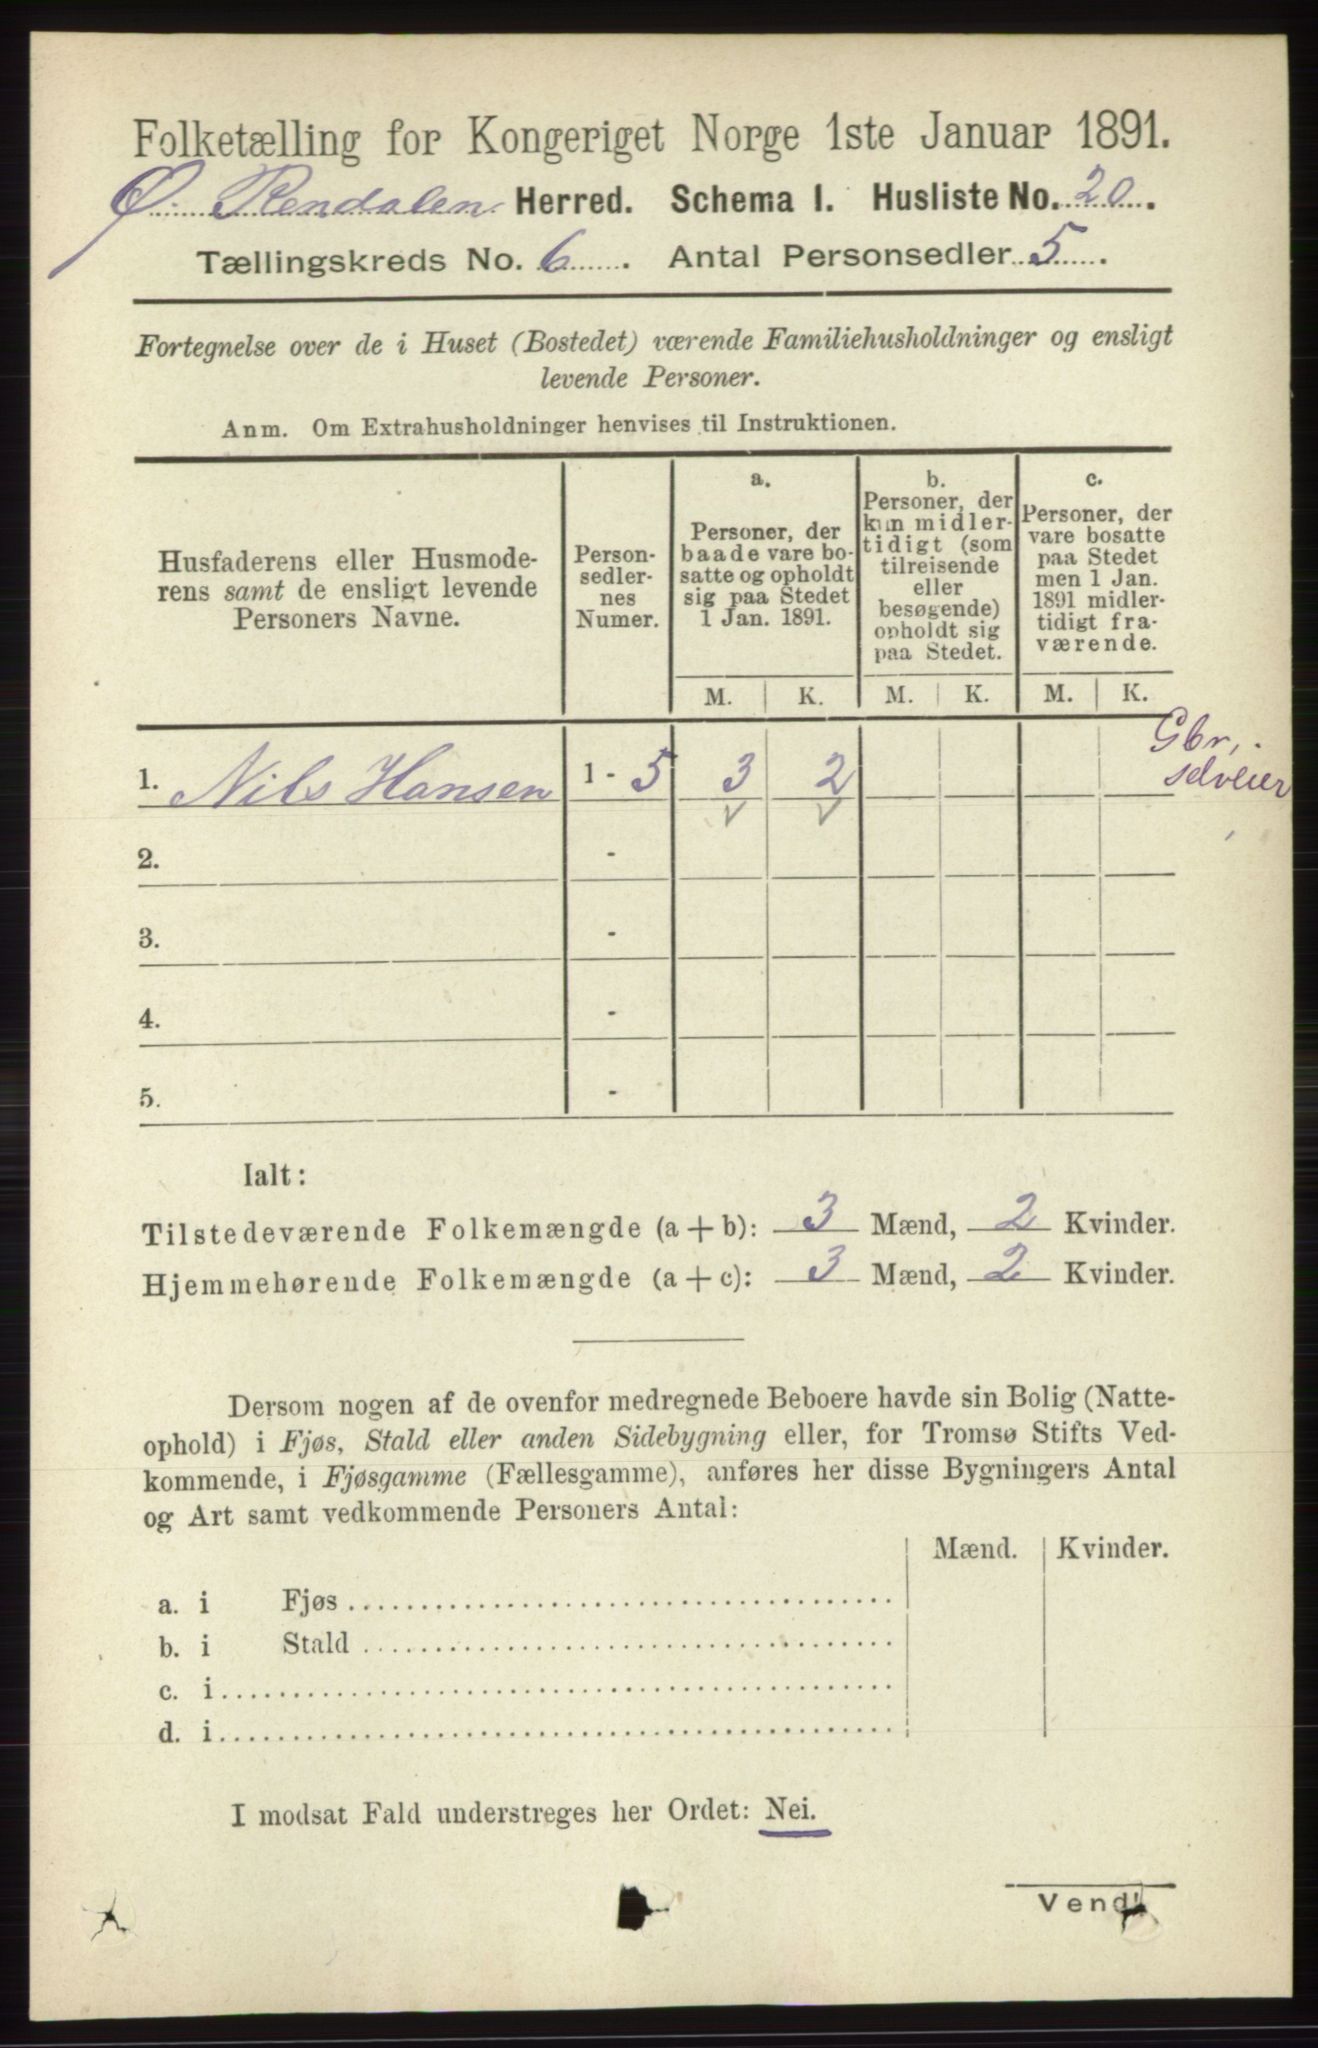 Folketælling for Kongeriget Norge 1ste Januar 1891.
Ø. Rendalen Herred. Schema I. Husliste No. 20.
Tællingskreds No. 6. Antal Personsedler 5.
Fortegnelse over de i Huset (Bostedet) værende Familiehusholdninger og ensligt
levende Personer.
Anm. Om Extrahusholdninger henvises til Instruktionen.
Husfaderens eller Husmode-
rens samt de ensligt levende
Personers Navne.
Person-
sedler-
nes
Numer.
a.
Personer, der
baade vare bo-
satte og opholdt
sig paa Stedet
1 Jan. 1891.
b.
Personer, der
kun midler-
tidigt (som
tilreisende
eller
besøgende)
opholdt sig
paa Stedet.
c.
Personer, der
vare bosatte
paa Stedet
men 1 Jan.
1891 midler-
tidigt fra-
værende.
M. K. M. K. M. K.
1. Nils Hansen 1 - 5 3 2
Gbr,.
selveier
2. -
3. -
4. -
5. -
Ialt:
Tilstedeværende Folkemængde (a + b): 3 Mænd, 2 Kvinder.
Hjemmehørende Folkemængde (a + c): 3 Mænd, 2 Kvinder.
Dersom nogen af de ovenfor medregnede Beboere havde sin Bolig (Natte-
ophold) i Fjøs, Stald eller anden Sidebygning eller, for Tromsø Stifts Ved-
kommende, i Fjøsgamme (Fællesgamme), anføres her disse Bygningers Antal
og Art samt vedkommende Personers Antal:
Mænd. Kvinder.
a. i Fjøs
b. i Stald
c. i
d. i
I modsat Fald understreges her Ordet: Nei.
Vend!